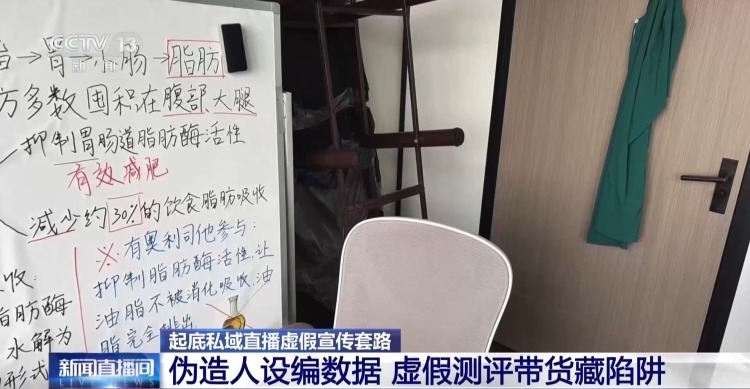 CCTV 13
新闻
→胃→小肠→脂肪
方多数囤积在腹部、大腿
抑制胃肠道脂肪酶活性
有效减肥
减少约30%的饮食脂肪吸收
收:
脂肪酶
水解为
形式
※有奥利司他参与:
抑制脂肪酶活性,让
油脂不被消化吸收,油
脂完全排出
起底私域直播虚假宣传套路
新闻直播间
伪造人设编数据 虚假测评带货藏陷阱